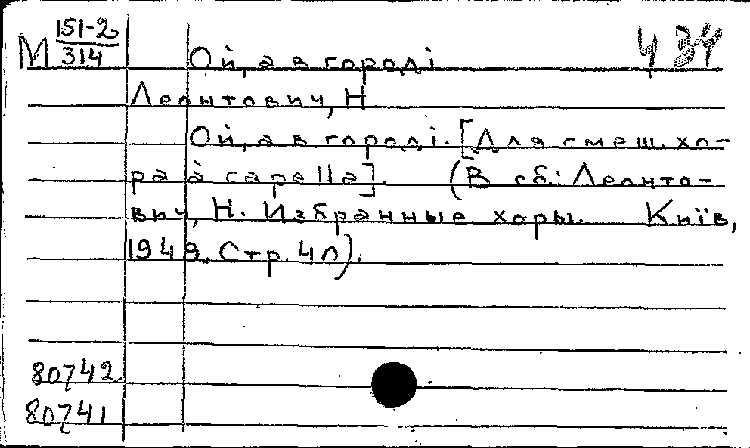 М 151-2/314
Ой, а в городі
434
Леонтович, Н
Ой, а в городі. [Для смеш. хо-
ра а̀ capella]. (В сб.: Леонто-
вич, Н. Избранные хоры. Київ,
1949. Стр. 41).
80742
80741